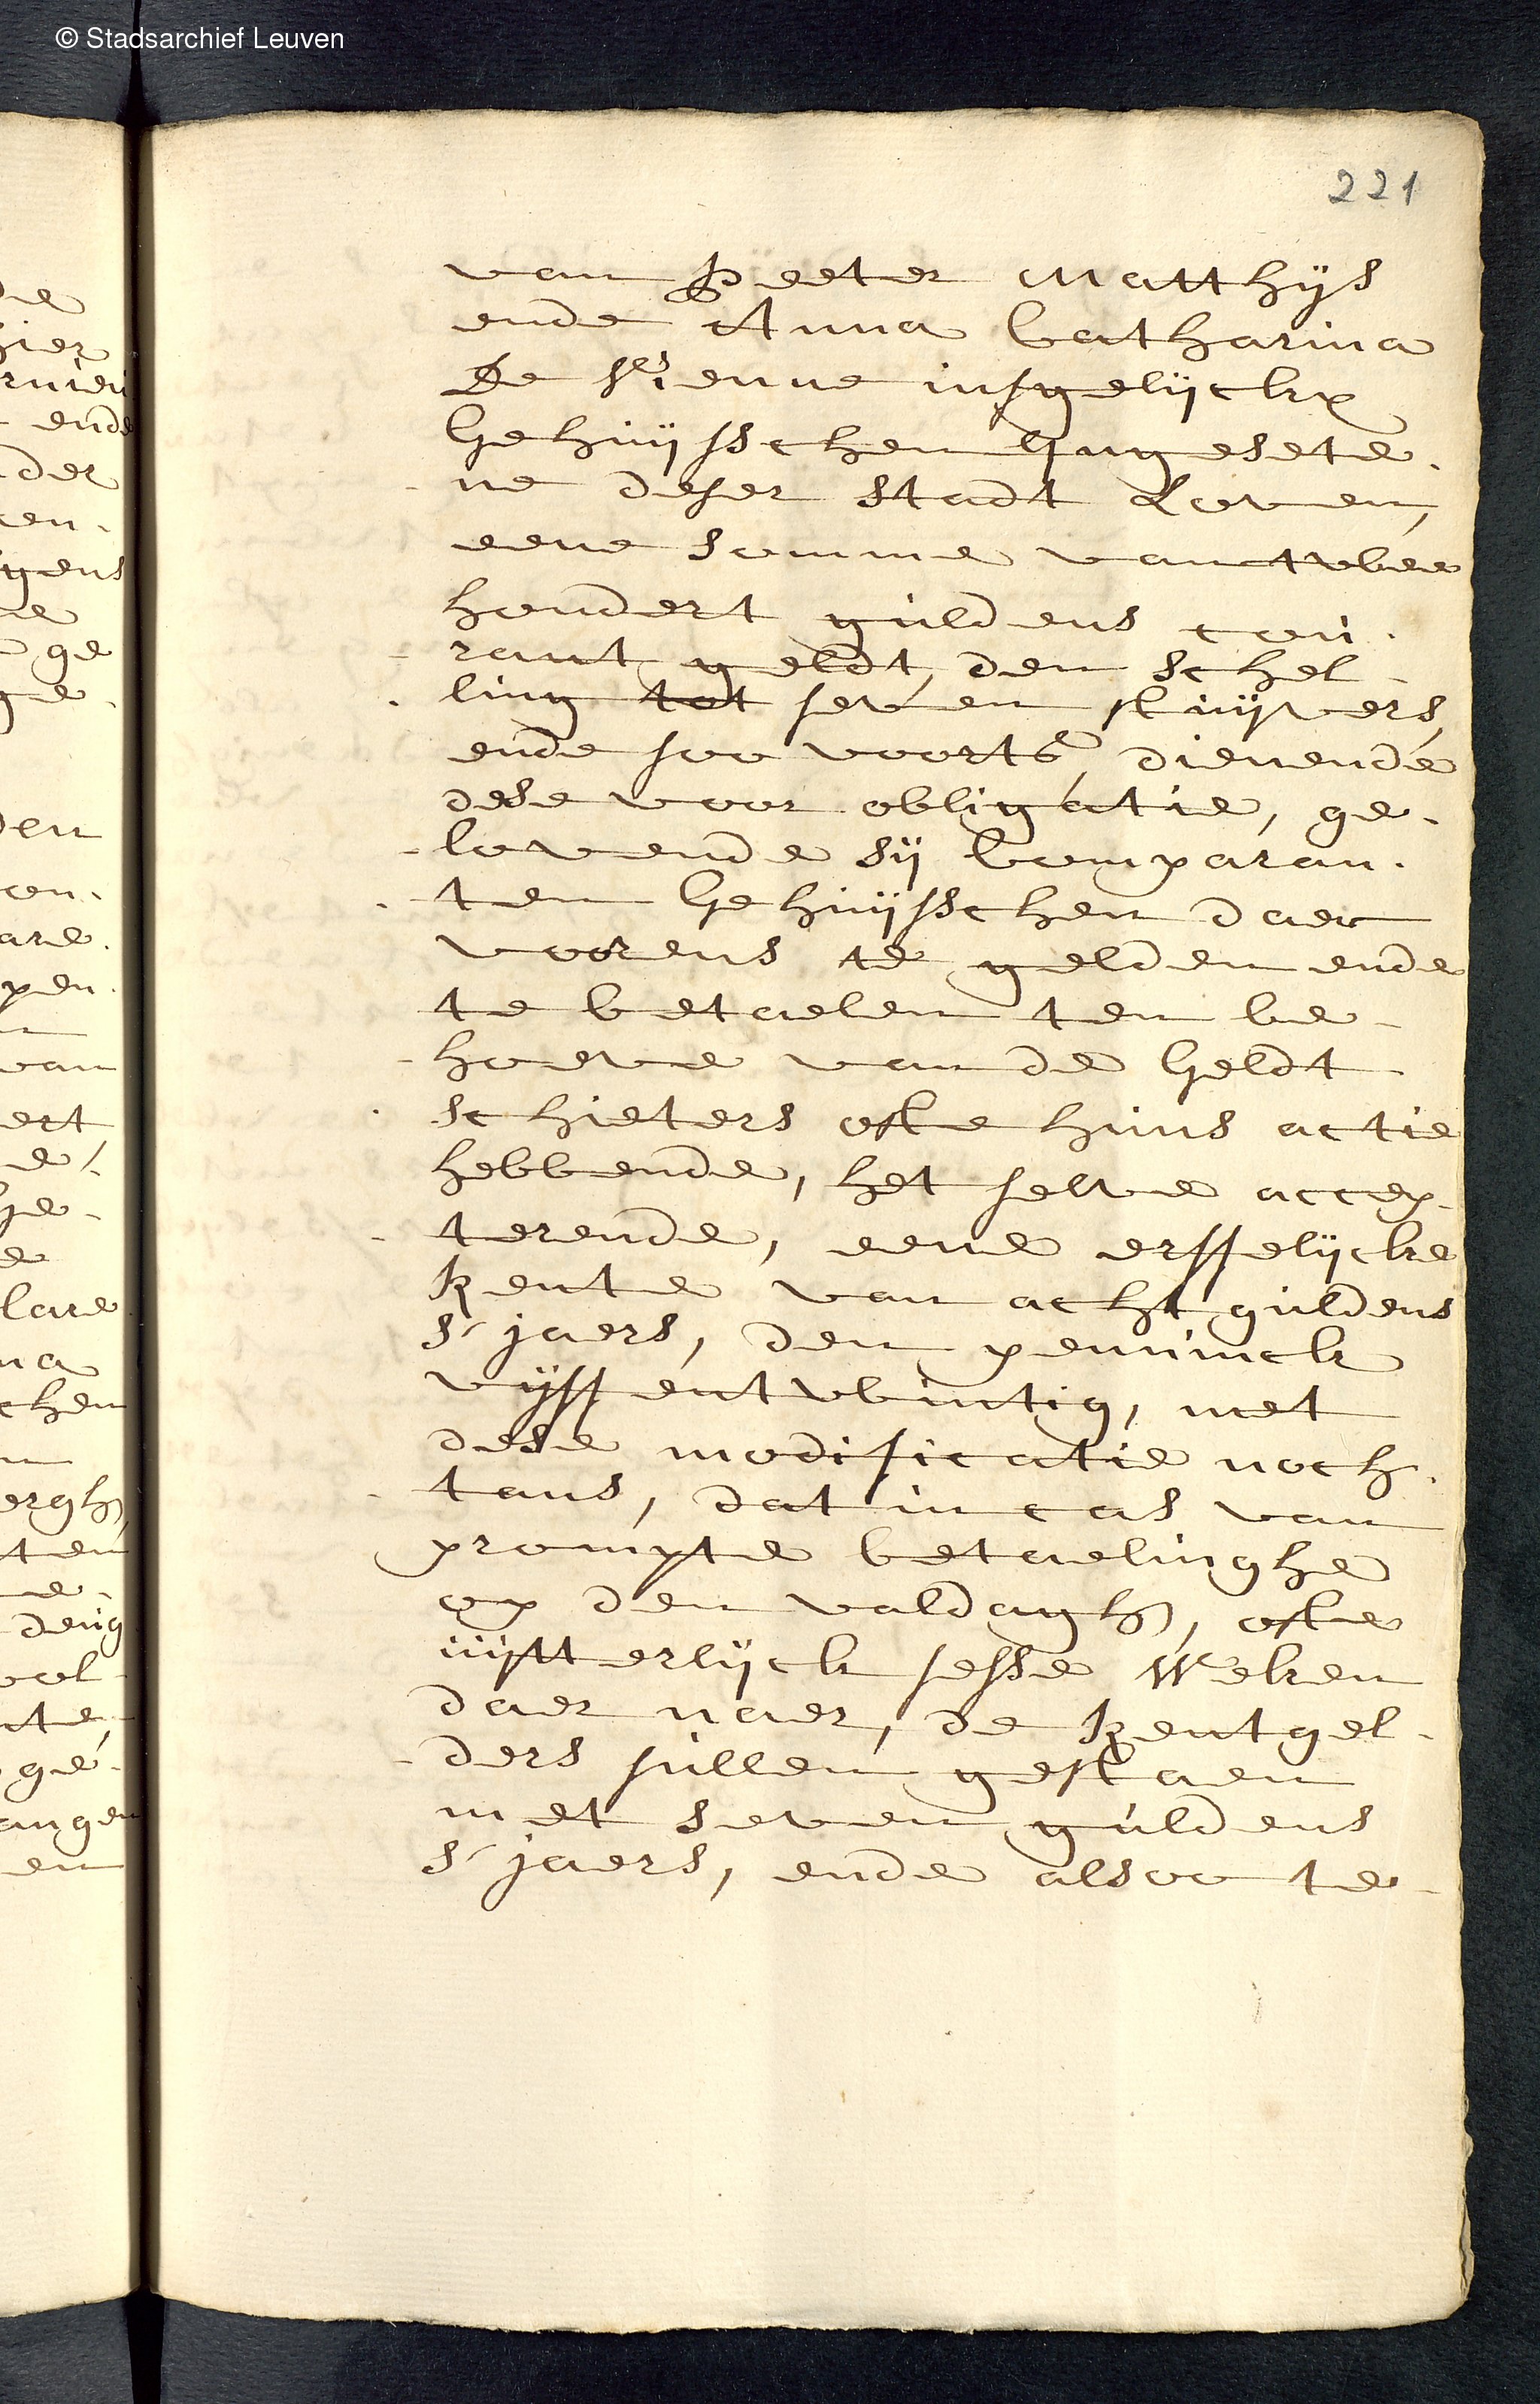 © Stadsarchief Leuven
221
van Peeter Matthijs
ende Anna Catharina
De insgelijckx
Gehuijsschen Ingesete-
ne deser stadt Loven,
eene somme van twee
hondert guldens cou-
rant geldt, den schel-
ling tot seven stuijvers,
ende soo voorts, dienende
dese voor obligatie, ge-
lovende sij Comparan-
ten Gehuijsschen daer
voorens te gelden ende
te betaelen ten be-
hoeve van de Geldt
schieters ofte huns actie
hebbende, het selve accep-
terende, eene erffelijcke
Rente van acht guldens
s'jaers, den penninck
vijffentwintig, met
dese modificatie noch-
tans, dat in cas van
prompte betaelinghe
op den valdagh, ofte
uijtterlijck sesse Weken
daer naer, de Rentgel-
ders sullen gestaen
met seven guldens
s'jaers, ende alsoo te-